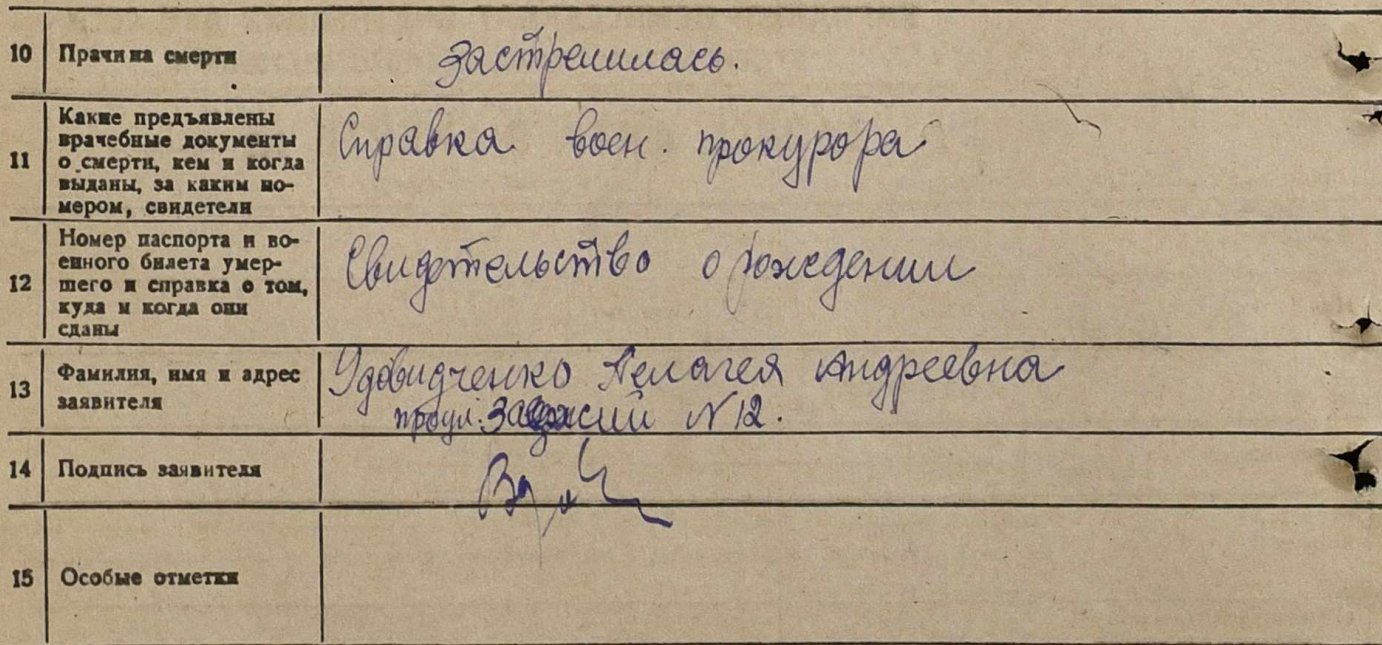 10 Причина смерти застрелилась.
11 Какие предъявлены
врачебные документы
о смерти, кем и когда
выданы, за каким но-
мером, свидетели
Справка воен. прокурора
12 Номер паспорта и во-
енного билета умер-
шего и справка о том,
куда и когда они
сданы
Свидетельство о рождении
13 Фамилия, имя и адрес
заявителя
Удовидченко Пелагея Андреевна
N 12.
14 Подпись заявителя
15 Особые отметки